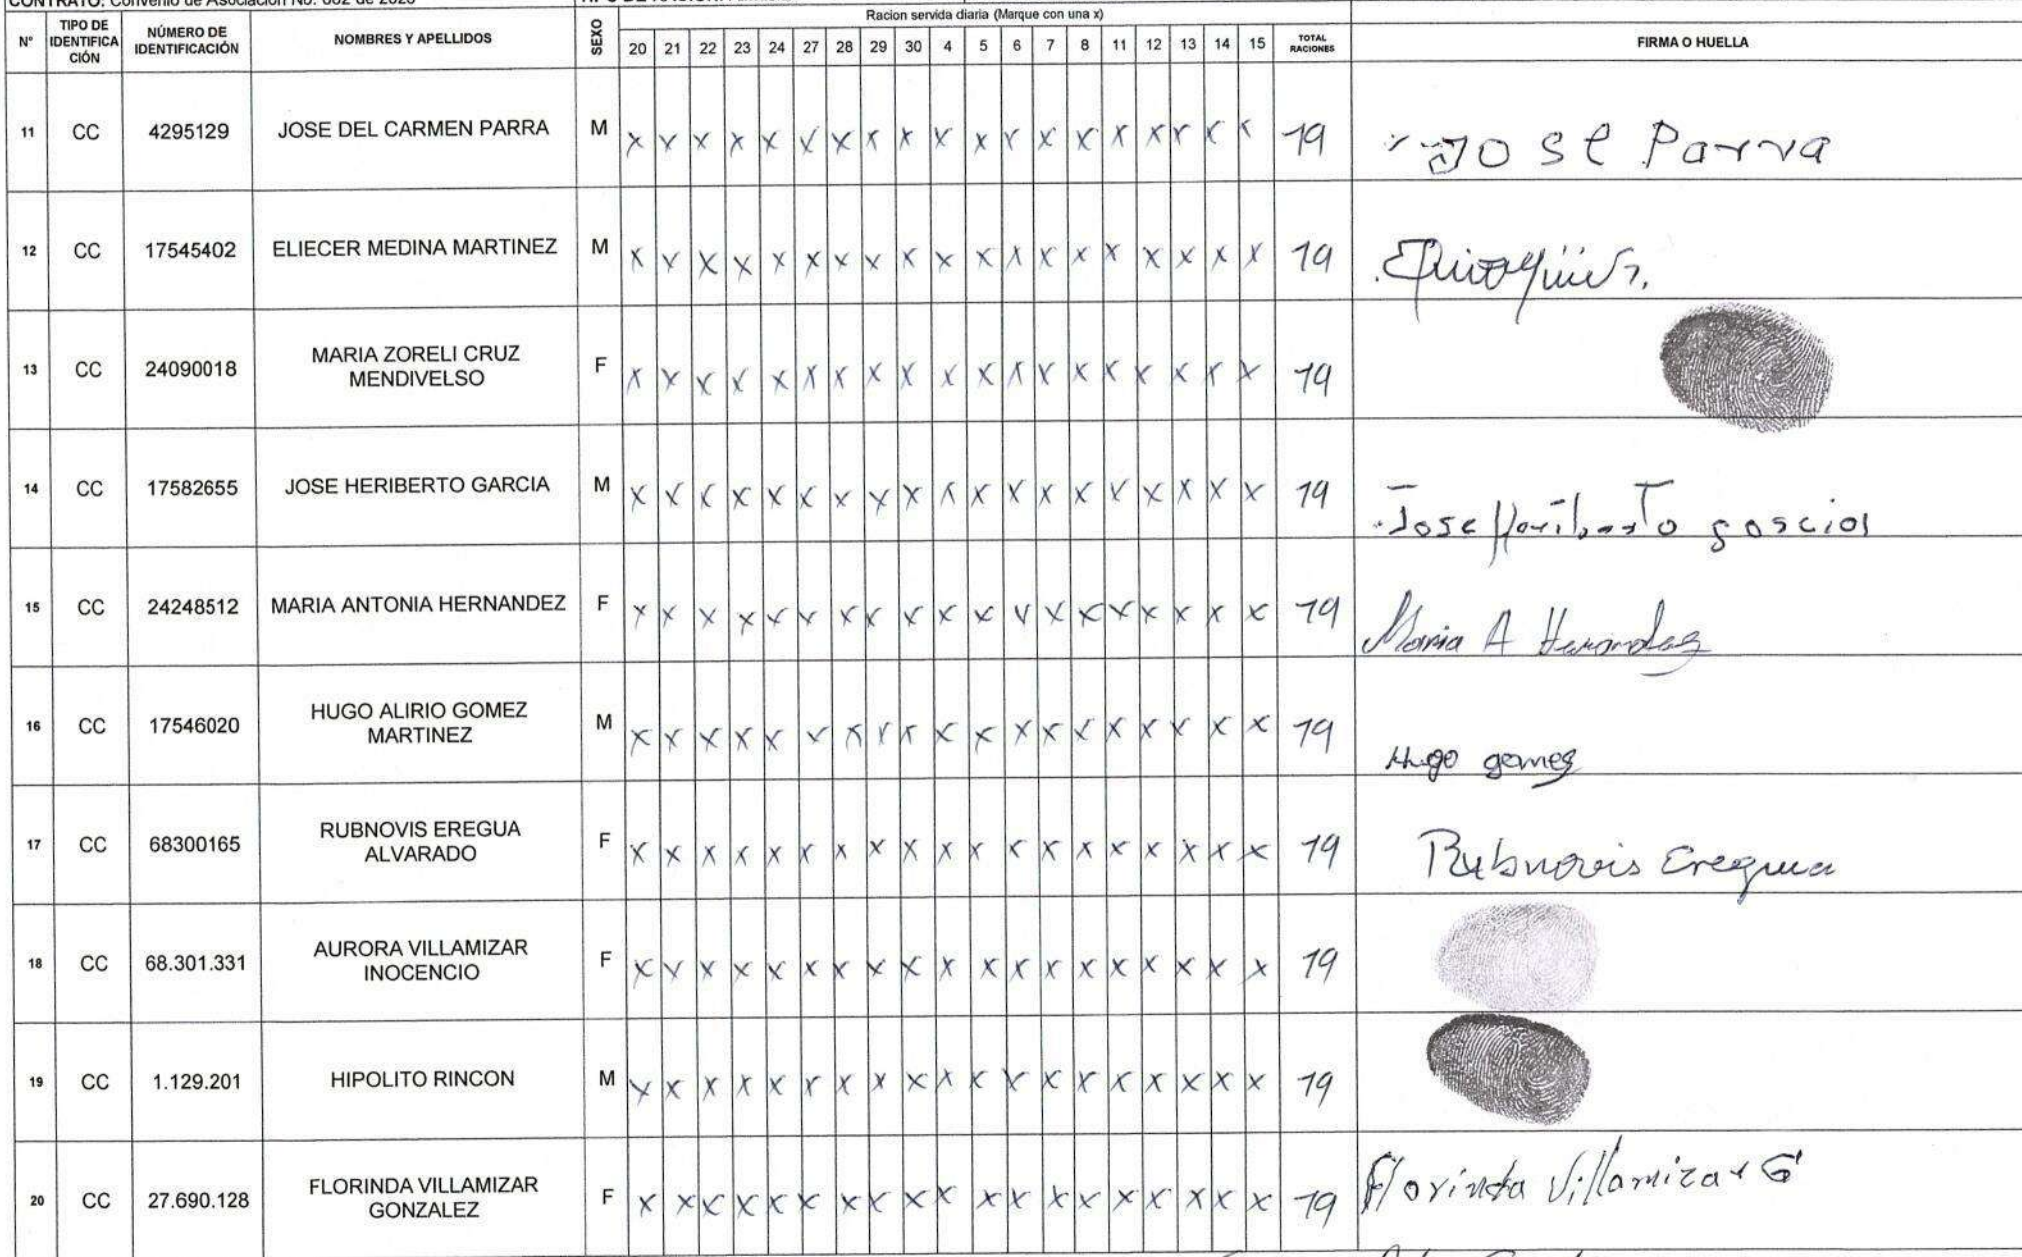 CONTRATO: Convenio de Asociación No. 002 de 2020
Racion servida diaria (Marque con una x)
N° TIPO DE IDENTIFICACIÓN NÚMERO DE IDENTIFICACIÓN NOMBRES Y APELLIDOS SEXO 20 21 22 23 24 27 28 29 30 4 5 6 7 8 11 12 13 14 15 TOTAL RACIONES FIRMA O HUELLA
11 CC 4295129 JOSE DEL CARMEN PARRA M x x x x x x x x x x x x x x x x x x x 19 Jose Parra
12 CC 17545402 ELIECER MEDINA MARTINEZ M x x x x x x x x x x x x x x x x x x x 19
13 CC 24090018 MARIA ZORELI CRUZ MENDIVELSO F x x x x x x x x x x x x x x x x x x x 19
14 CC 17582655 JOSE HERIBERTO GARCIA M x x x x x x x x x x x x x x x x x x x 19 Jose Heriberto
15 CC 24248512 MARIA ANTONIA HERNANDEZ F x x x x x x x x x x x x x x x x x x x 19 Maria A Hernandez
16 CC 17546020 HUGO ALIRIO GOMEZ MARTINEZ M x x x x x x x x x x x x x x x x x x x 19 Hugo gomez
17 CC 68300165 RUBNOVIS EREGUA ALVARADO F x x x x x x x x x x x x x x x x x x x 19 Rubnovis Eregua
18 CC 68.301.331 AURORA VILLAMIZAR INOCENCIO F x x x x x x x x x x x x x x x x x x x 19
19 CC 1.129.201 HIPOLITO RINCON M x x x x x x x x x x x x x x x x x x x 19
20 CC 27.690.128 FLORINDA VILLAMIZAR GONZALEZ F x x x x x x x x x x x x x x x x x x x 19 Florinda Villamizar G